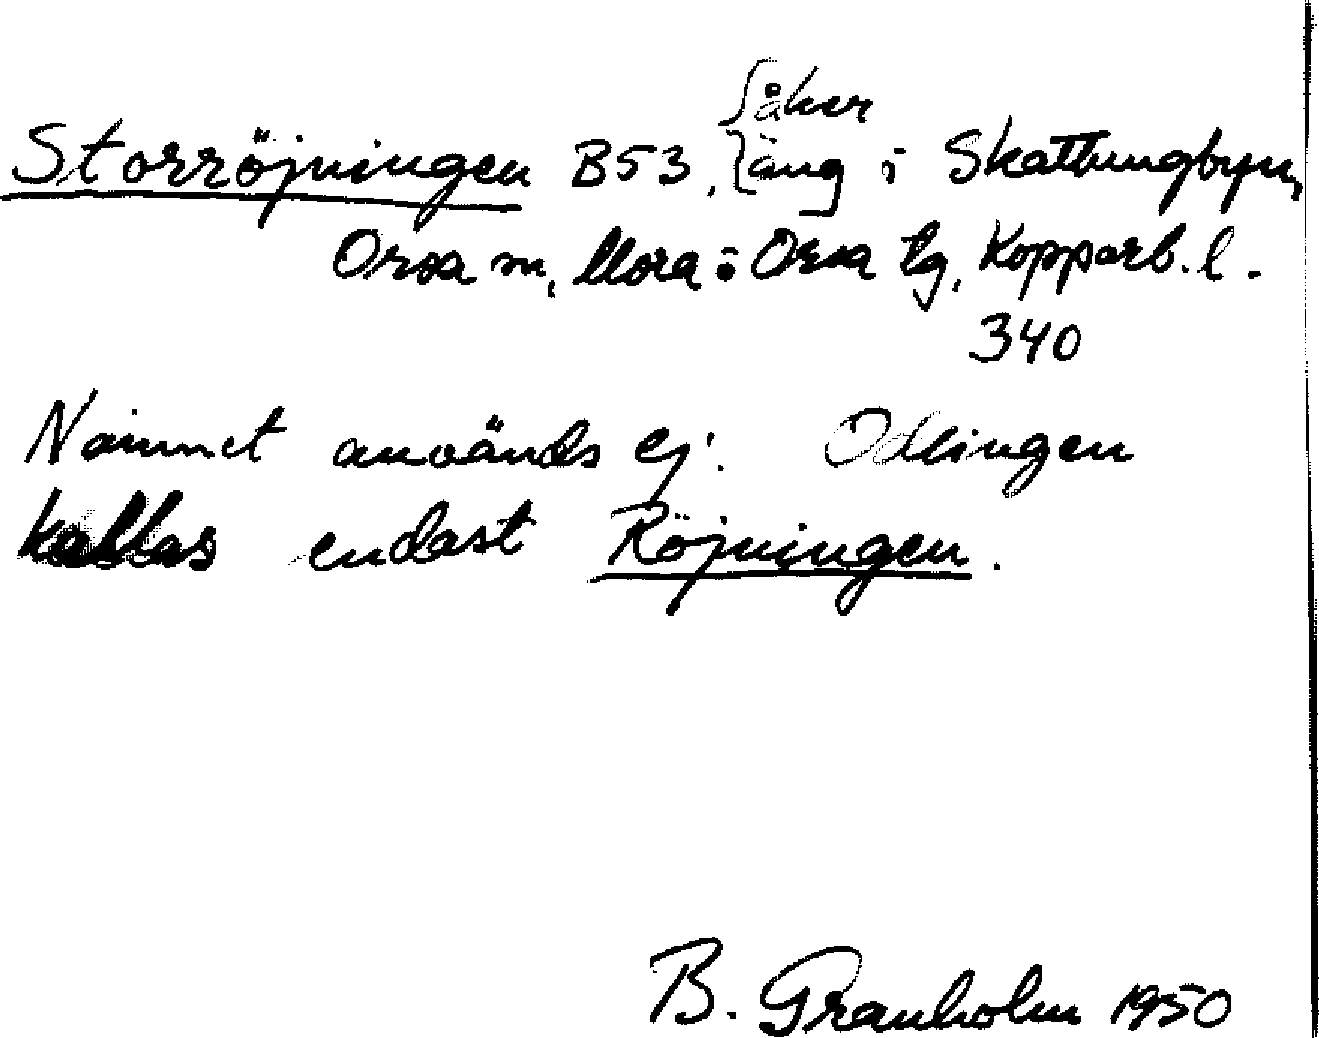 Storröjningen B53, {åker
äng i Skattungbyn,
Orsa sn, Mora o Orsa tg, Kopparb. l.
340
Namnet används ej. Odlingen
kallas endast Röjningen.
B. Granholm 1950